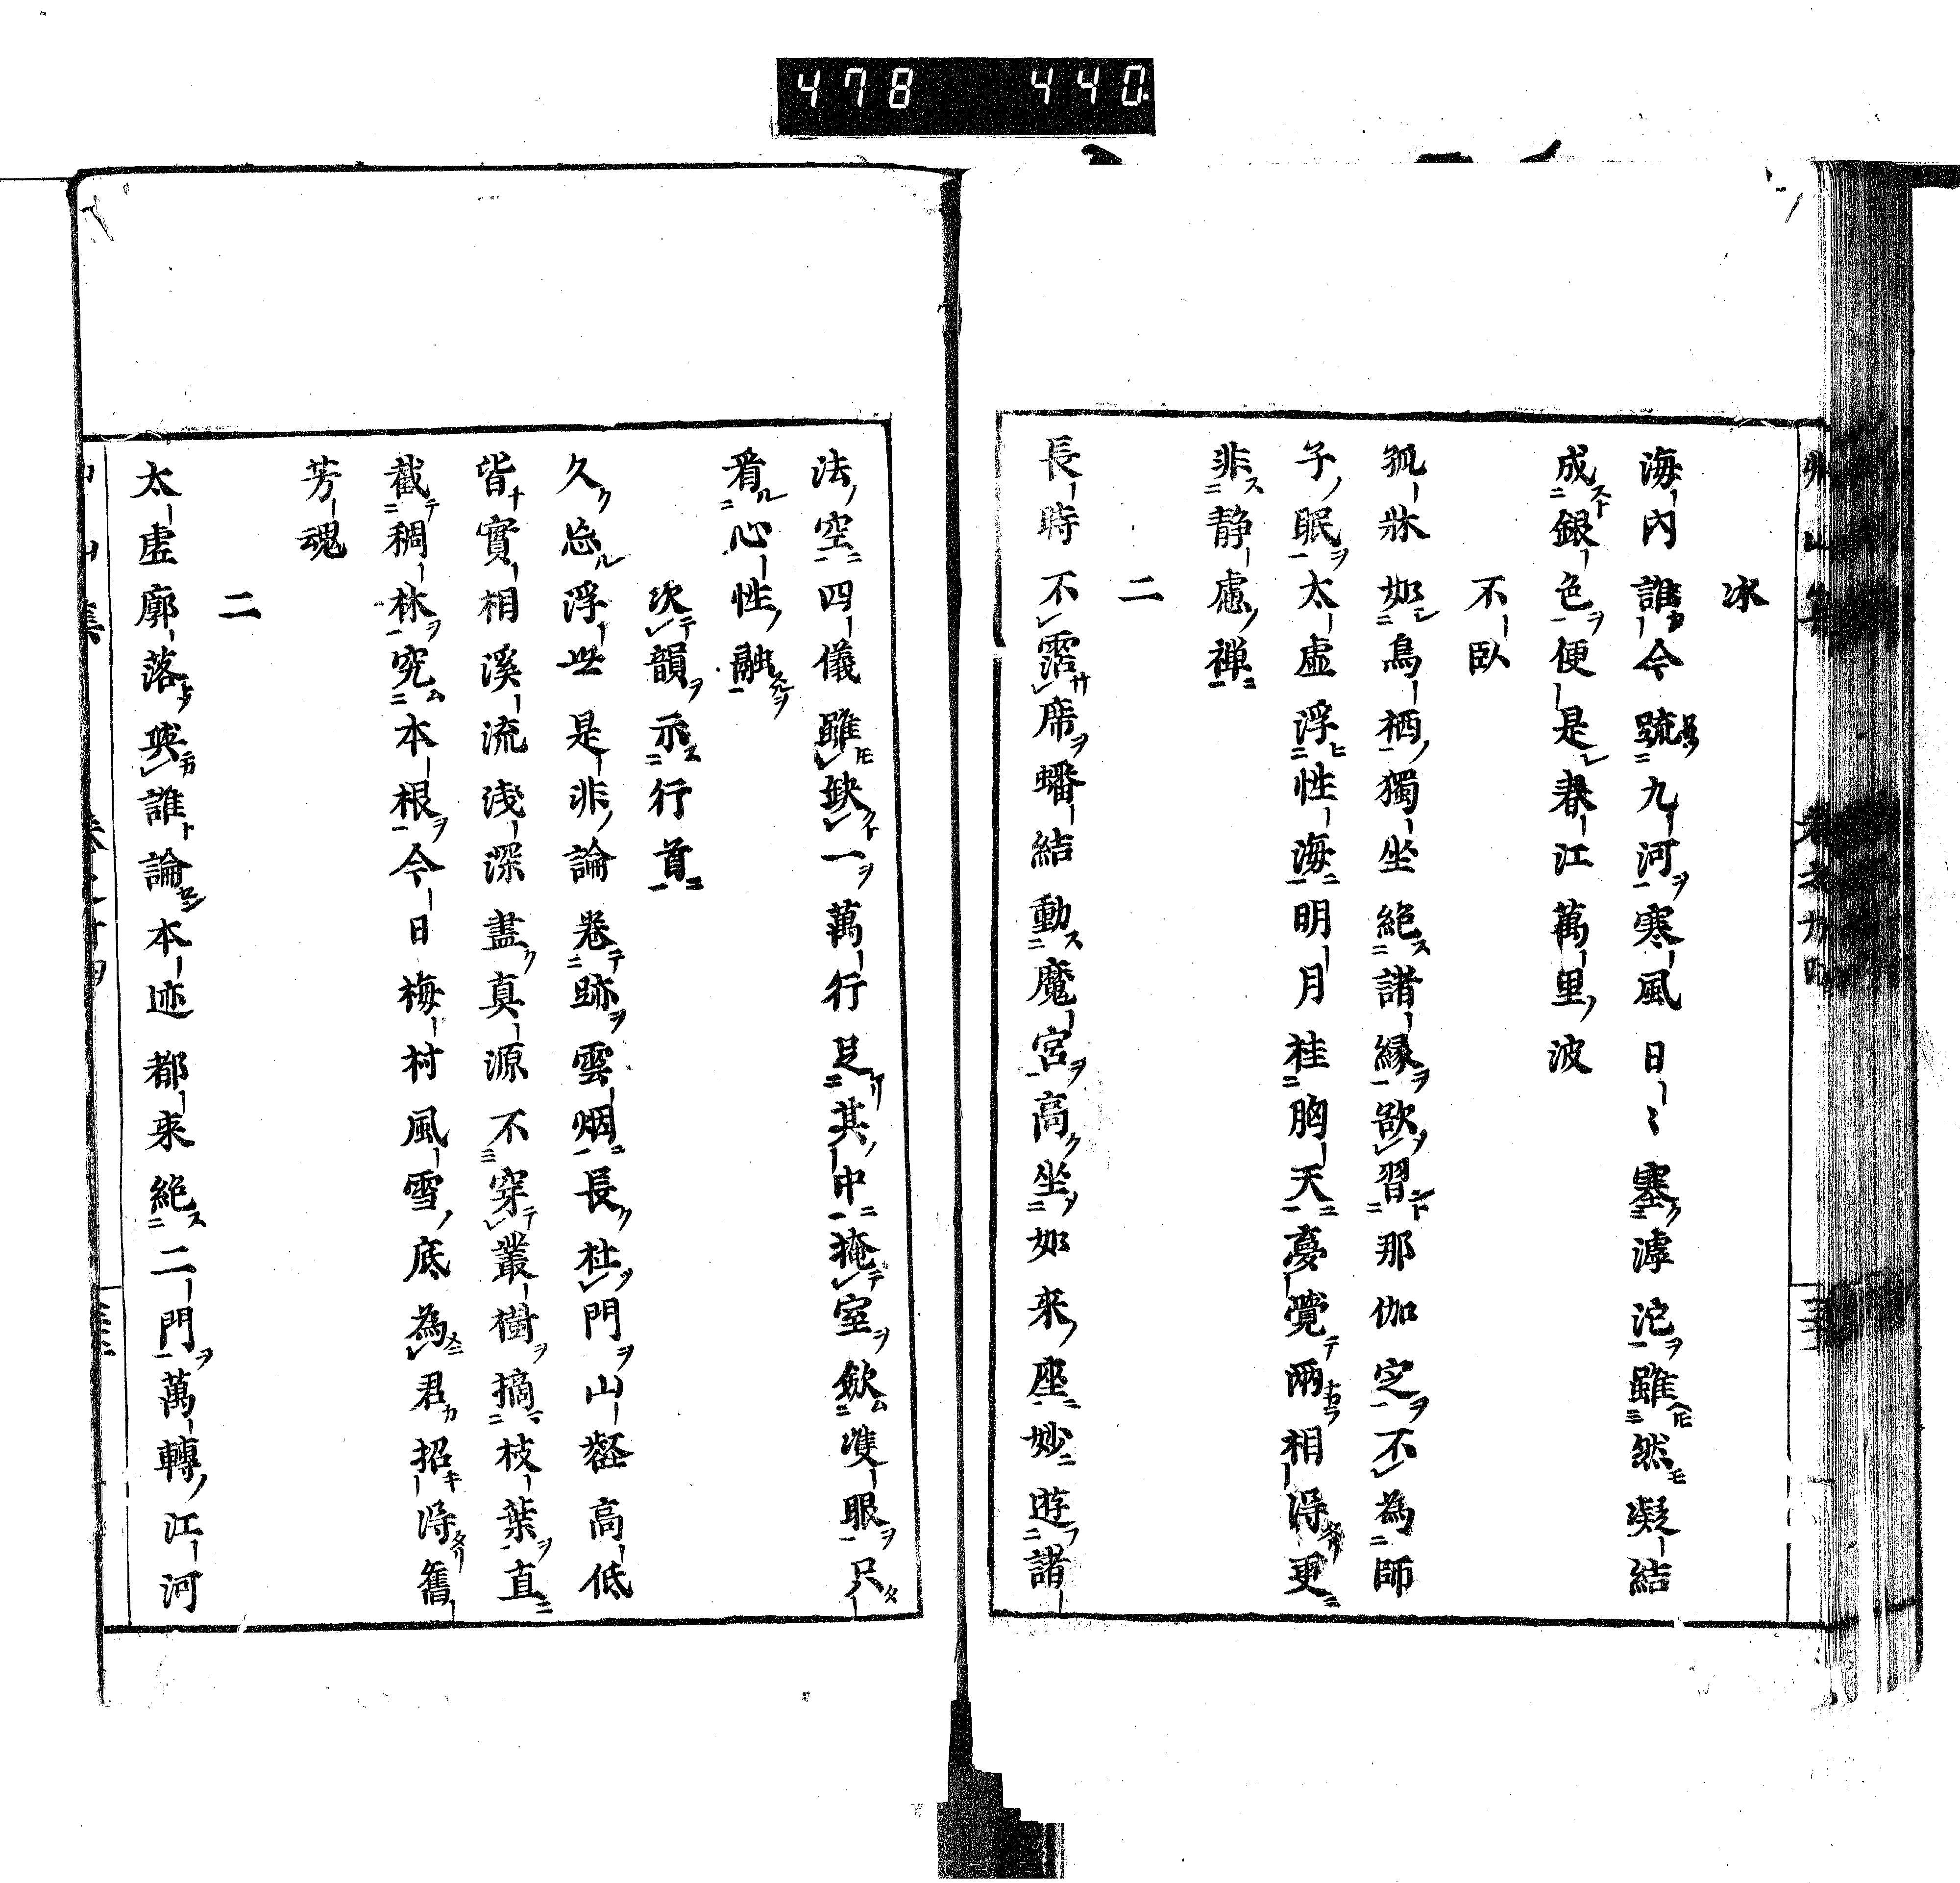 478 440
冰
海内誰今號九河寒風日〻塞滹沱雖然凝結
成銀色便是春江萬里波
不臥
孤牀如鳥栖獨坐絶諸縁欲習那伽定不為師
子眠太虛浮性海明月桂胸天憂覺兩相淂更
非静慮禅
二
長時不霑席蟠結動魔宮高坐如来座妙遊諸
法空四儀雖缺一萬行足其中掩室飲雙眼只
看心性融
次韻示行首
久忘浮世是非論卷跡雲烟長杜門山壑高低
皆實相溪流浅深盡真源不穿叢樹摘枝葉直
截稠林究本根今日梅村風雪底為君招淂舊
芳魂
二
太虛廓落與誰論本迹都来絶二門萬轉江河